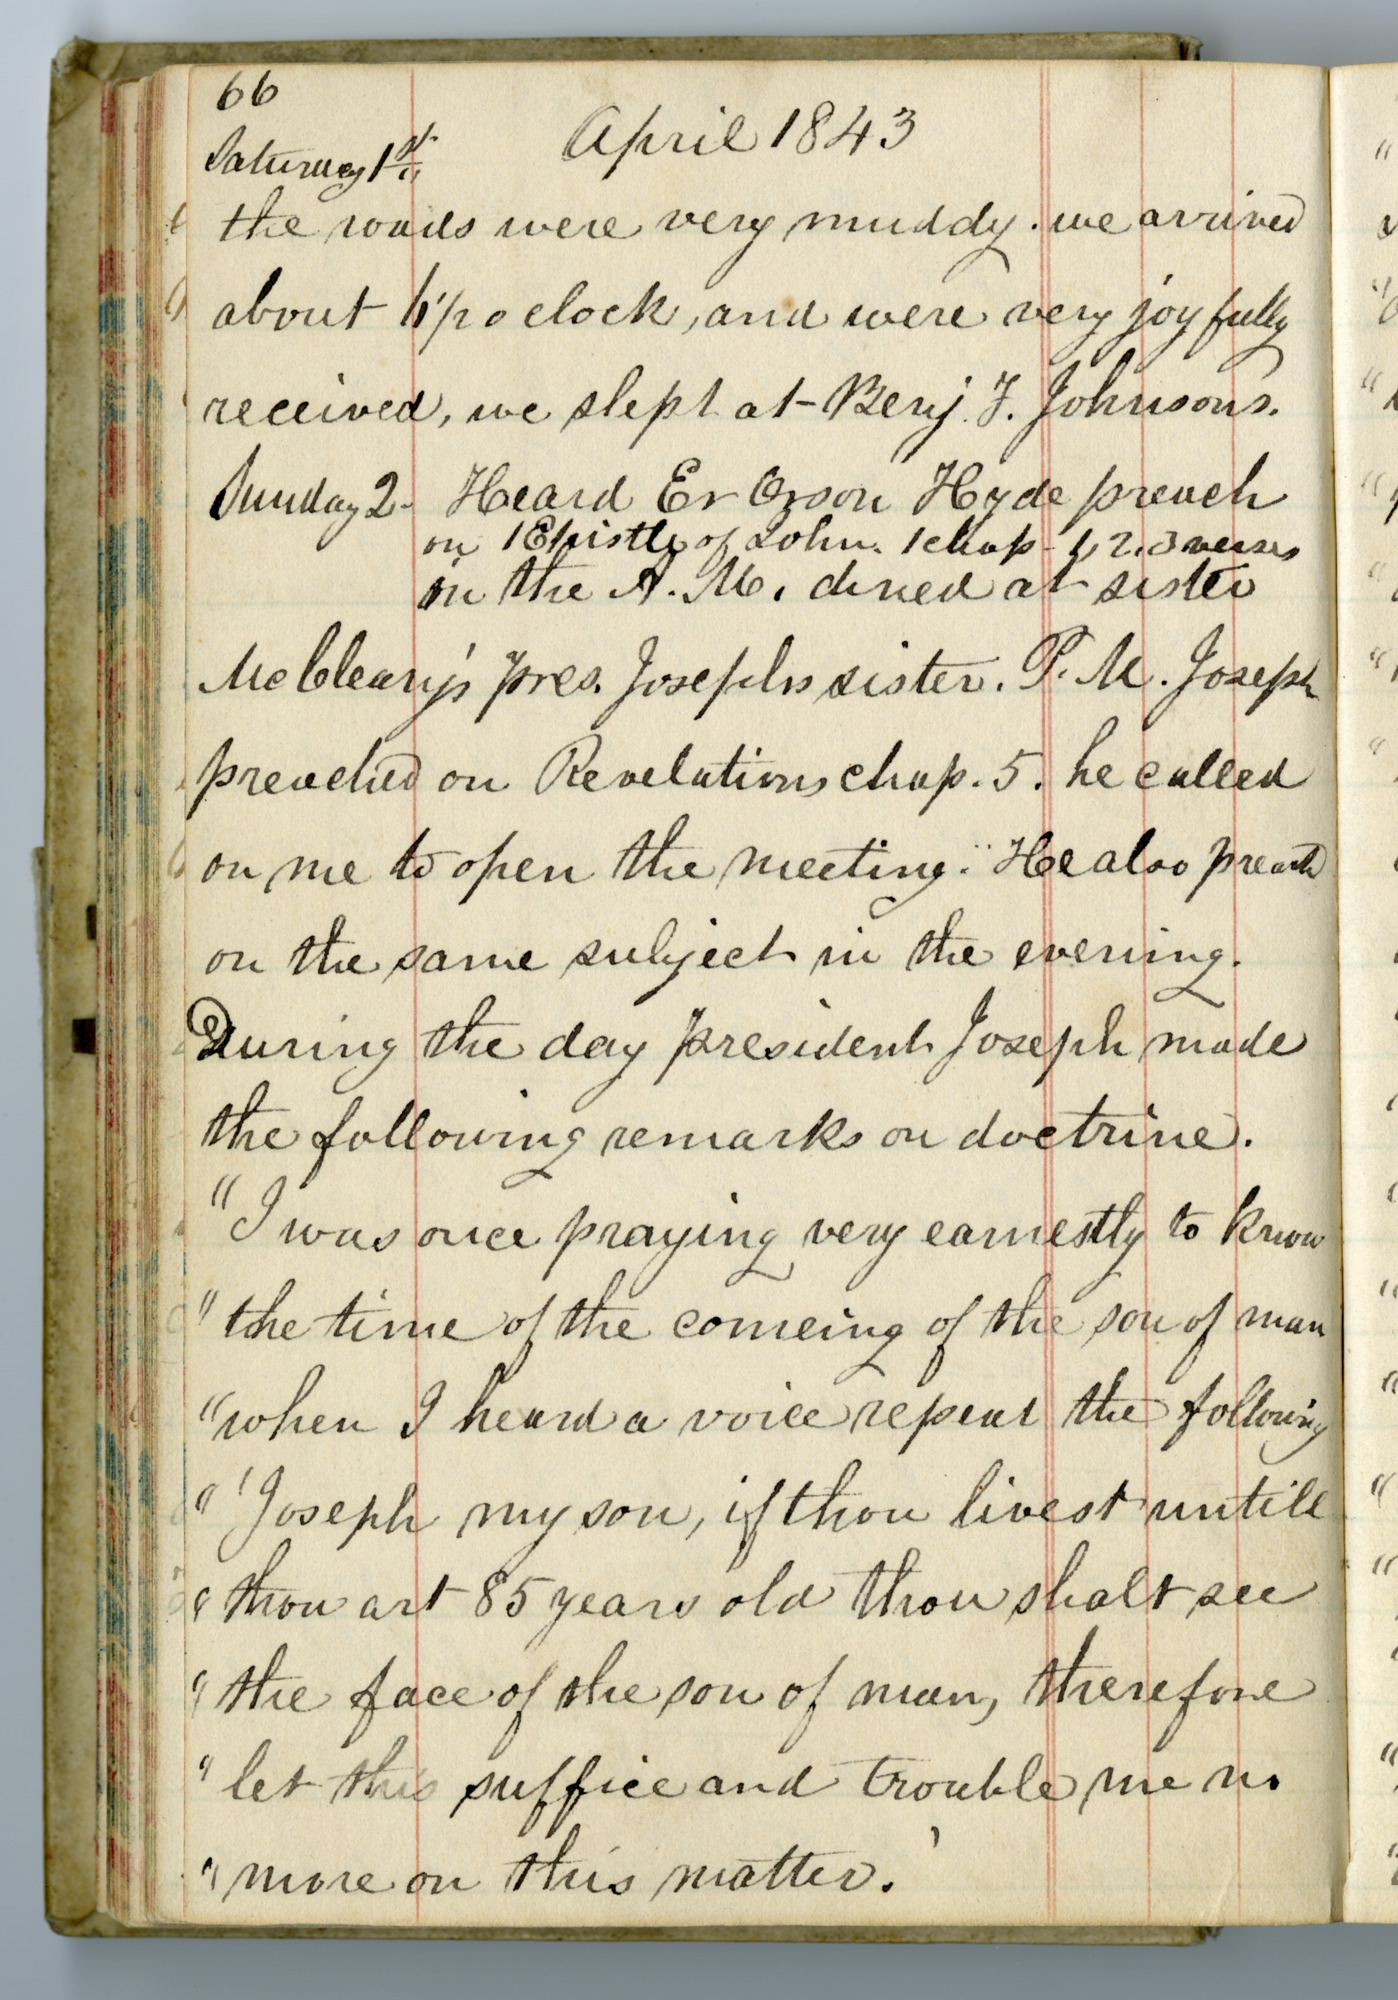 66
April 1843
Saturday 1st
the roads were very muddy. we arrived
about o clock, and were very joyfully
received, we slept at Benj. F. Johnsons.
Sunday 2. Heard Er Orson Hyde preach
on 1 Epistle of John. 1 chap - 1, 2, 3 verses
in the A. M. dined at sister
McCleary's pres. Josephs sister. P. M. Joseph
preached on Revelations chap. 5. he called
on me to open the meeting. He also preachd
on the same subject in the evening.
During the day president Joseph made
the following remarks on doctrine.
"I was once praying very earnestly to know
"the time of the comeing of the son of man
"when I heard a voice repeat the following
"'Joseph my son, if thou livest untill
"thou art 85 years old thou shalt see
"the face of the son of man, therefore
"let this suffice and trouble me no
"more on this matter.'